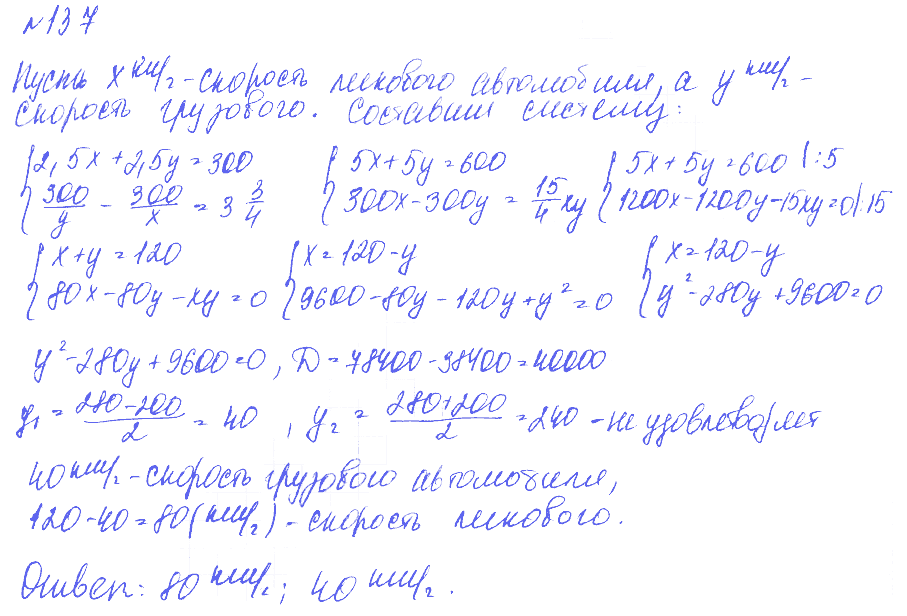 №137
Пусть x км/г - скорость легкового автомобиля, а y км/г -
скорость грузового. Составим систему:
{ 2,5x + 2,5y = 300 { 5x + 5y = 600 { 5x + 5y = 600 | :5
{ 300/y - 300/x = 3 3/4 { 300x - 300y = 15/4 xy { 1200x - 1200y - 15xy = 0 | :15
{ x + y = 120 { x = 120 - y { x = 120 - y
{ 80x - 80y - xy = 0 { 9600 - 80y - 120y + y² = 0 { y² - 280y + 9600 = 0
y² - 280y + 9600 = 0, D = 78400 - 38400 = 40000
y₁ = (280 - 200)/2 = 40, y₂ = (280 + 200)/2 = 240 - не удовлетворяет
40 км/г - скорость грузового автомобиля,
120 - 40 = 80 (км/г) - скорость легкового.
Ответ: 80 км/г; 40 км/г.